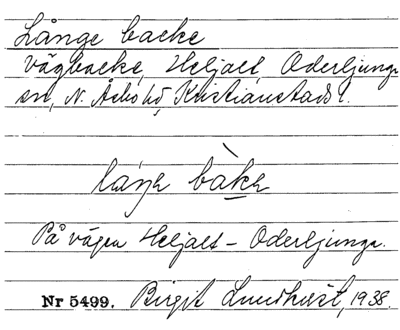 Långe backe
vägbacke, Heljalt, Oderljunga
sn, N. Åsbo hd, Kristianstads l.
På vägen Heljalt – Oderljunga.
Nr 5499. Birgit Lundkvist, 1938.